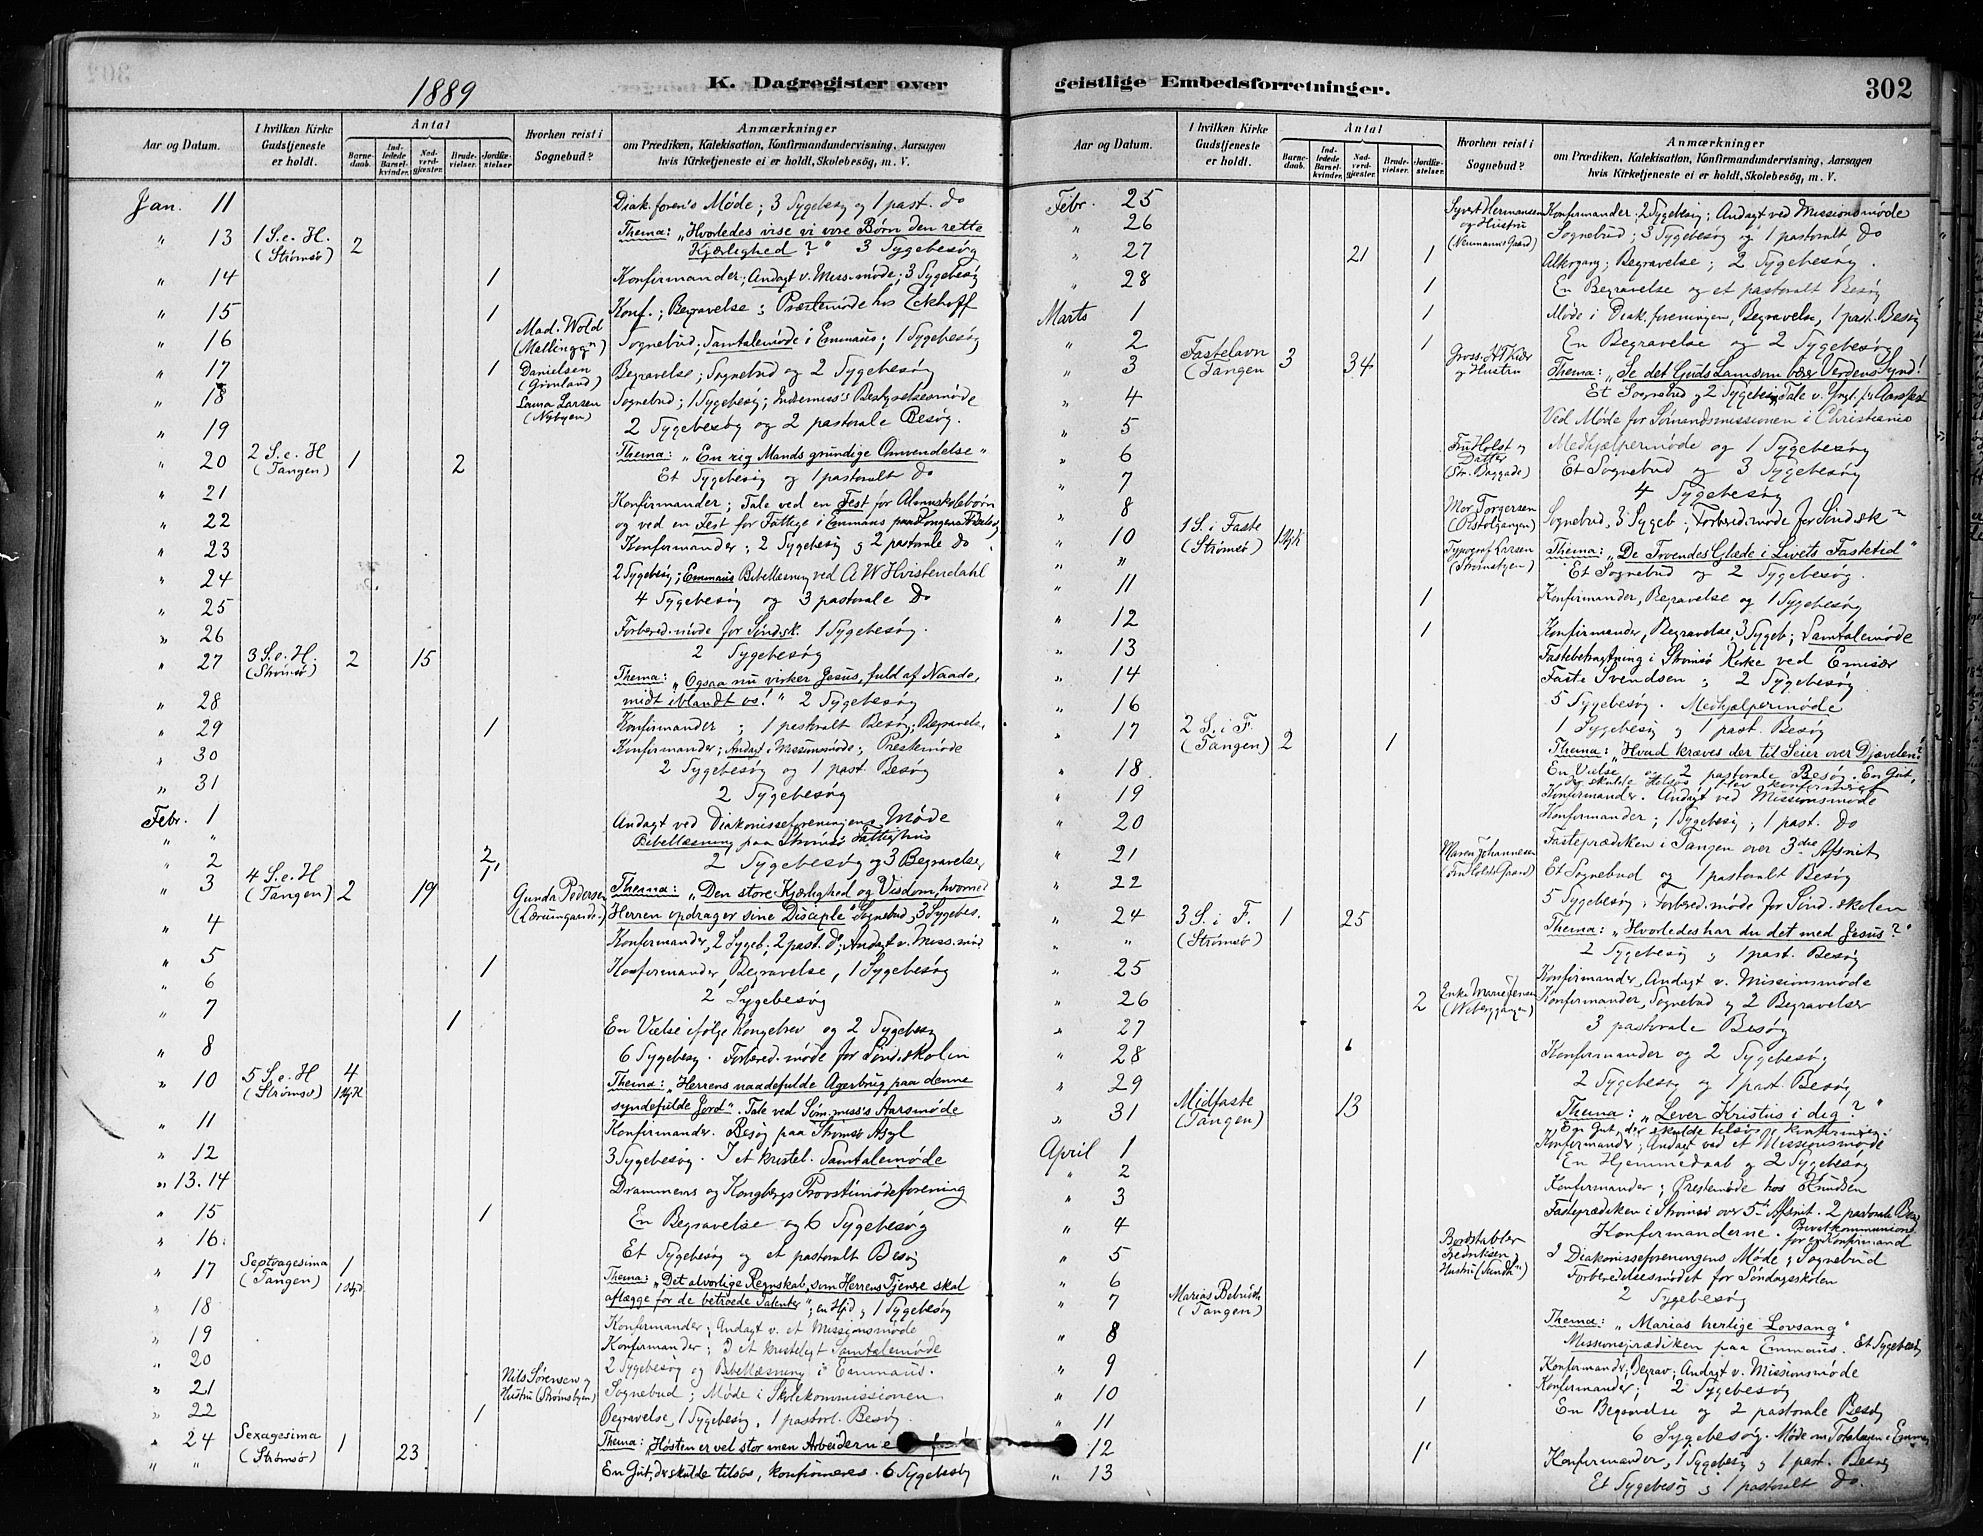 1889
K. Dagregister over
Aar og Datum.
I hvilken Kirke Gudstjeneste er holdt.
Antal
Barnedaab.
Indledede Barselkvinder.
Nadverdgjæster.
Brudevielser.
Jordfæstelser
Hvorhen reist i Sognebud?
Anmærkninger
om Prædiken, Katekisation, Konfirmandundervisning, Aarsagen
hvis Kirketjeneste ei er holdt, Skolebesøg, m. V.
Jan. 11 Diak. foren's Møde; 3 Sygebesøg og 1 past. Do
" 13 1 S. e. H. (Strømsø) 2 Thema: "Hvorledes vise vi vore Børn den rette
Kjærlighed?" 3 Sygebesøg
" 14 1 Konfirmander; Andagt v. Miss.møde; 3 Sygebesøg
" 15 1 Konf.; Begravelse; Præstemøde hos Eckhoff
" 16 Mad. Wold Sognebud; Samtalemøde i Emmaus; 1 Sygebesøg
" 17 1 Danielsen (Grønland) Begravelse; Sognebud og 2 Sygebesøg
" 18 Laura Larsen (Nybyen) Sognebud; 1 Sygebesøg; Indremiss's Bestyrelsesmøde
" 19 2 Sygebesøg og 2 pastorale Besøg.
" 20 2 S. e. H (Tangen) 1 2 Thema: "En rig Mands grundige Omvendelse"
Et Sygebesøg og 1 pastoralt Do
" 21 Konfirmander; Tale ved en Fest for Almuskolebørn
" 22 og ved en Fest for Fattige i Emmaus
" 23 Konfirmander; 2 Sygebesøg og 2 pastorale Do
" 24 2 Sygebesøg; Emmaus Bibellæsning ved A W Hvistendahl
" 25 4 Sygebesøg og 3 pastorale Do
" 26 Forbered. møde for Sønd.sk. 1 Sygebesøg.
" 27 3 S. e. H. (Strømsø) 2 15 2 Sygebesøg
Thema: "Ogsaa nu virker Jesus, fuld af Naade,
" 28 midt iblandt os!" 2 Sygebesøg
" 29 1 Konfirmander; 1 pastoralt Besøg; Begravelse
" 30 Konfirmander; Andagt i Missionsmøde; Prestemøde
2 Sygebesøg og 1 past. Besøg
" 31 2 Sygebesøg
Febr. 1 Andagt ved Diakonisseforeningens Møde
" Bibellæsning paa Strømsø Fattighus
" 2 2 2 Sygebesøg og 3 Begravelser
" 3 4 S. e. H (Tangen) 2 19 Gunda Pedersen Thema: "Den store Kjærlighed og Visdom, hvormed
" 4 Herren opdrager sine Disciple" Sognebud, 3 Sygebes.
" 5 Konfirmander, 2 Sygeb. 2 past. Do; Andagt v. Miss. mød
" 6 1 Konfirmander, Begravelse, 1 Sygebesøg
" 7 2 Sygebesøg
1 En Vielse ifølge Kongebrev og 2 Sygebesøg
" 8 6 Sygebesøg. Forbered. møde for Sønd. skolen
" 10 5 S. e. H (Strømsø) 4 Thema: "Herrens naadefulde Agerbrug paa denne
syndefulde Jord". Tale ved Søm. miss's Aarsmøde
" 11 Konfirmander. Besøg paa Strømsø Asyl
" 12 3 Sygebesøg. I et kristel. Samtalemøde
" 13. 14 Drammens og Kongbergs Provstimødeforening
" 15 1 En Begravelse og 6 Sygebesøg
" 16. Et Sygebesøg og et pastoralt Besøg
" 17 Septvagesima (Tangen) 1 Thema: "Det alvorlige Regnskab, som Herrens Tjenere skal
aflægge for de betroede Talenter"; en Hjd og 1 Sygebesøg
" 18 Konfirmander; Andagt v. et Missionsmøde
" 19 Konfirmander; I et kristeligt Samtalemøde
" 20 2 Sygebesøg og Bibellæsning i Emmaus.
" 21 Nils Sørensen og Hustru (Strømsbyen) Sognebud; Møde i Skolekommissionen
" 22 1 Begravelse, 1 Sygebesøg, 1 pastorl. Besøg.
" 24 Sexagesima (Strømsø) 1 23 Thema: "Høsten er vel stor men Arbeiderne
" " En Gut, der skulde tilsøs, konfirmeres. 6 Sygebesøg
geistlige Embedsforretninger.
302
Aar og Datum.
I hvilken Kirke Gudstjeneste er holdt.
Antal
Barnedaab.
Indledede Barselkvinder.
Nadverdgjæster.
Brudevielser.
Jordfæstelser.
Hvorhen reist i Sognebud?
Anmærkninger
om Prædiken, Katekisation, Konfirmandundervisning, Aarsagen
hvis Kirketjeneste ei er holdt, Skolebesøg, m. V.
Febr. 25 Syvert Hermansen og Hustru (Neumanns Gaard) Konfirmander; 2 Sygebesøg; Andagt ved Missionsmøde
" 26 Sognebud; 3 Sygebesøg og 1 pastoralt Do
" 27 21 1 Altergang; Begravelse; 2 Sygebesøg.
" 28 1 En Begravelse og et pastoralt Besøg
Marts 1 1 Møde i Diak. foreningen, Begravelse, 1 past. Besøg
" 2 1 En Begravelse og 2 Sygebesøg
" 3 Fastelavn (Tangen 3 34 og Hustru Thema: "Se det Guds Lam som bær Verdens Synd!
" 4 Et Sognebud og 2 Sygebesøg
" 5 Ved Møde for Sømandsmissionen i Christiania
" 6 Fru Holst og Datter Medhjælpermøde og 1 Sygebesøg
" 7 Et Sognebud og 3 Sygebesøg
" 8 4 Sygebesøg
Mor Torgersen Sognebud, 3 Sygeb; Forbered. møde for Sønd.sk
" 10 1 S. i Faste (Strømsø) Typograf Larsen Thema: "De Troendes Glede i Livets Fastetid"
" " Et Sognebud og 2 Sygebesøg.
" 11 1 Konfirmander, Begravelse og 1 Sygebesøg
" 12 1 Konfirmander, Begravelse, 3 Sygeb; Samtalemøde
" 13 Fastebetragtning i Strømsø Kirke ved Emisær
" 14 Faste Svendsen; 2 Sygebesøg
" 16 5 Sygebesøg. Medhjælpermøde
" 17 2 S. i F. (Tangen) 2 1 1 Sygebesøg og 1 past. Besøg
Thema: "Hvad kræves der til Seier over Djævelen?
" 18 En Vielse og 2 pastorale Besøg. En Gut,
der skulde tilsøs blev konfirmeret
" 19 Konfirmander. Andagt ved Missionsmøde
" 20 Konfirmander; 1 Sygebesøg; 1 past. Do
" 21 Maren Johannesen Fasteprædiken i Tangen over 3die Afsnit
" 22 Et Sognebud og 1 pastoralt Besøg
5 Sygebesøg; Forbered. møde for Sønd. skolen
" 24 3 S. i F. (Strømsø) 1 25 Thema: "Hvorledes har du det med Jesus?"
" " 2 Sygebesøg og 1 past. Besøg
" 25 Konfirmander, Andagt v. Missionsmøde
" 26 2 Enke Marie Jensen Konfirmander, Sognebud og 2 Begravelser
" 27 3 pastorale Besøg
" 28 Konfirmander og 2 Sygebesøg
" 29 2 Sygebesøg og 1 past. Besøg
" 31 Midfaste (Tangen) 13 Thema: "Lever Kristus i dig?"
En Gut, der skulde tilsøs, konfirmeres.
April 1 Konfirmander; Andagt ved et Missionsmøde
" 2 En Hjemmedaab og 2 Sygebesøg
" 3 Konfirmander; Prestemøde hos Knudsen
" 4 Fasteprædiken i Strømsø over 5te Afsnit. 2 pastorale Besøg
Konfirmanderne. Privatkommunion for en Konfirmand
" 5 I Diakonisseforeningens Møde; Sognebud
" 6 Forberedelsesmødet for Søndagsskolen
" 7 Marias Bebud. (Tangen) 2 Sygebesøg
Thema: "Marias herlige Lovsang"
" 8 Missionsprædiken paa Emmaus. Et Sygebesøg
" 9 1 Konfirmander; Begrav; Andagt v. Missionsmøde
" 10 Konfirmander; 2 Sygebesøg
" 11 1 En Begravelse og 2 pastorale Besøg
6 Sygebesøg. Møde om Totalsagen i Emmaus
" 12 1 Konfirmander, 1 Sygebesøg og 1 past. Besøg
" 13 Et Sygebesøg og 1 pastoralt Do.